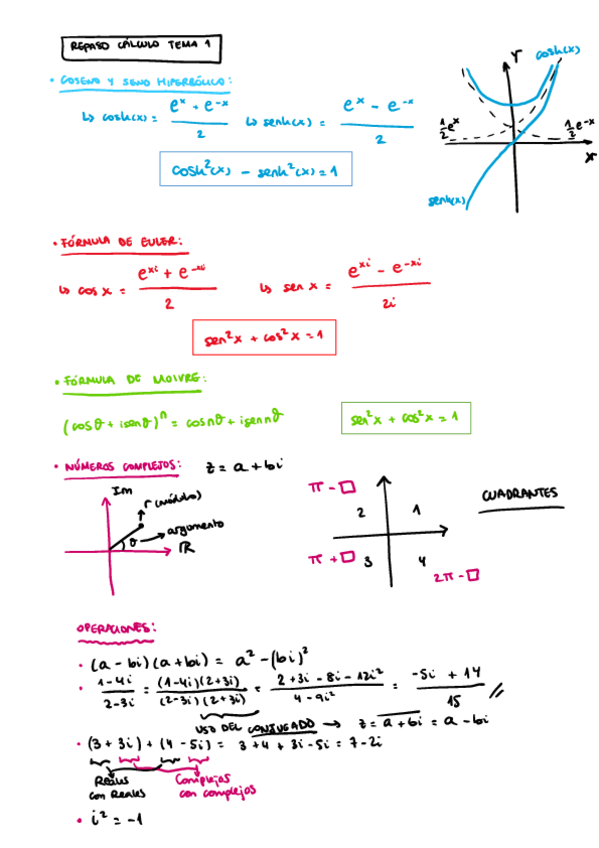 REPASO CÁLCULO TEMA 1
• COSENO Y SENO HIPERBÓLICO:
↳ cosh(x) = (e^x + e^-x)/2 ↳ senh(x) = (e^x - e^-x)/2
cosh²(x) - senh²(x) = 1
Y
cosh(x)
½e^x
½e^-x
x
senh(x)
• FÓRMULA DE EULER:
↳ cos x = (e^xi + e^-xi)/2 ↳ sen x = (e^xi - e^-xi)/2i
sen²x + cos²x = 1
• FÓRMULA DE MOIVRE:
(cosθ + isenθ)^n = cosnθ + isennθ
sen²x + cos²x = 1
• NÚMEROS COMPLEJOS: z = a + bi
Im
r (módulo)
θ
argomento
ℝ
π - □
2
1
CUADRANTES
π + □
3
4
2π - □
OPERACIONES:
• (a - bi)(a + bi) = a² - (bi)²
• (1-4i)/(2-3i) = (1-4i)(2+3i)/(2-3i)(2+3i) = (2+3i-8i-12i²)/(4-9i²) = (-5i + 14)/15 //
USO DEL CONJUGADO → z̄ = a + bi = a - bi
• (3 + 3i) + (4 - 5i) = 3+4 + 3i-5i = 7-2i
Reales
con Reales
Complejos
con complejos
• i² = -1